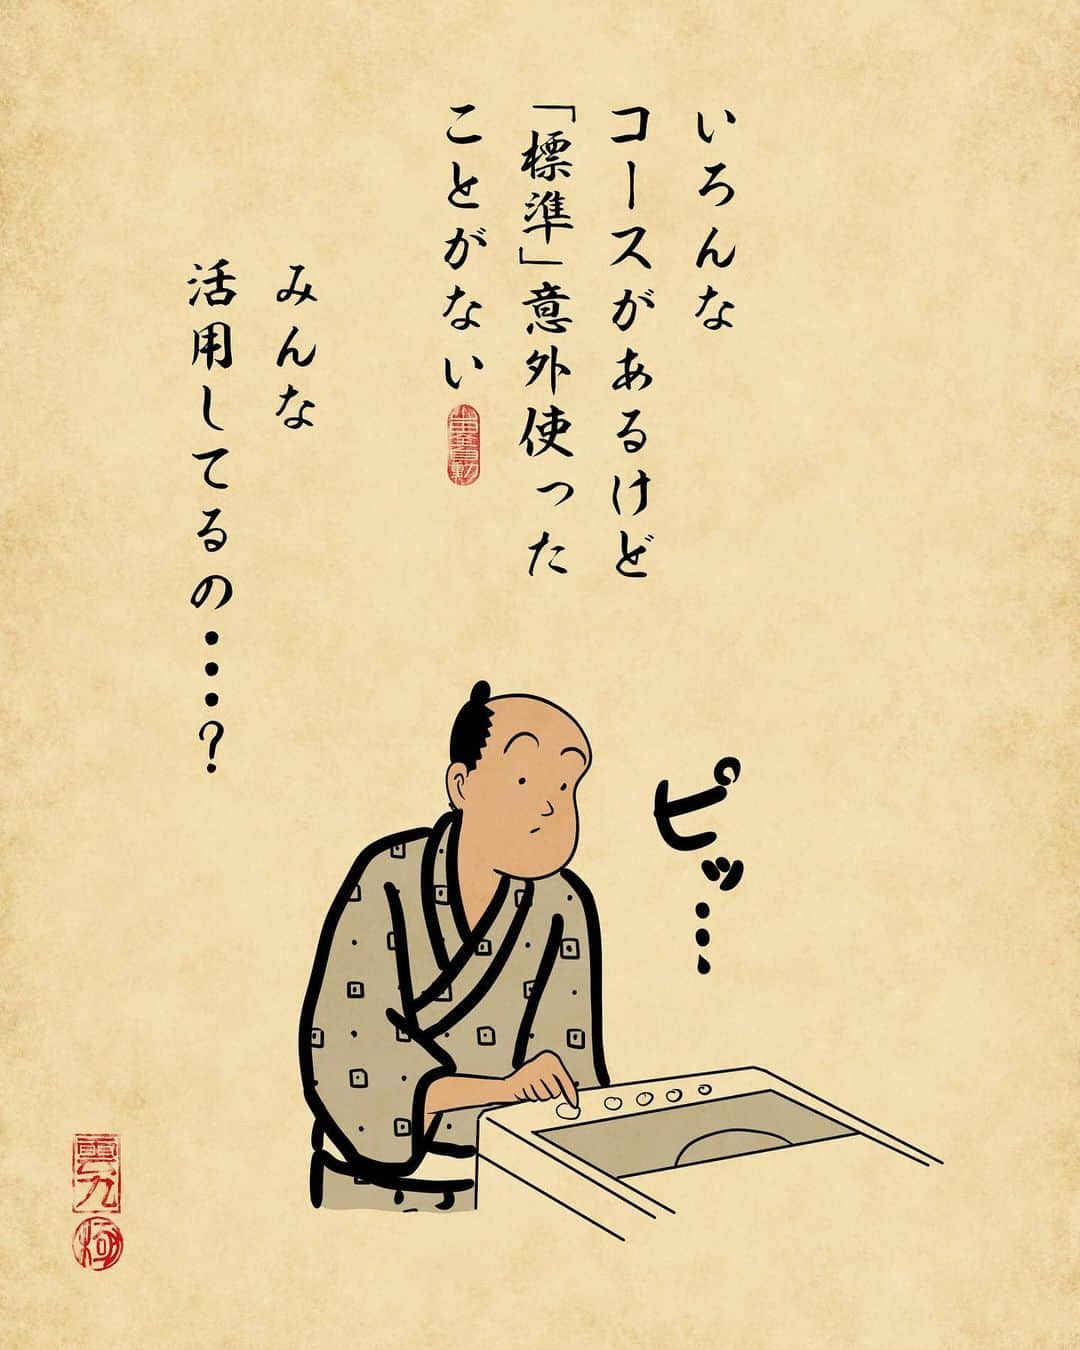 いろんな
コースがあるけど
「標準」意外使った
ことがない
みんな
活用してるの・・・？
ピッ…